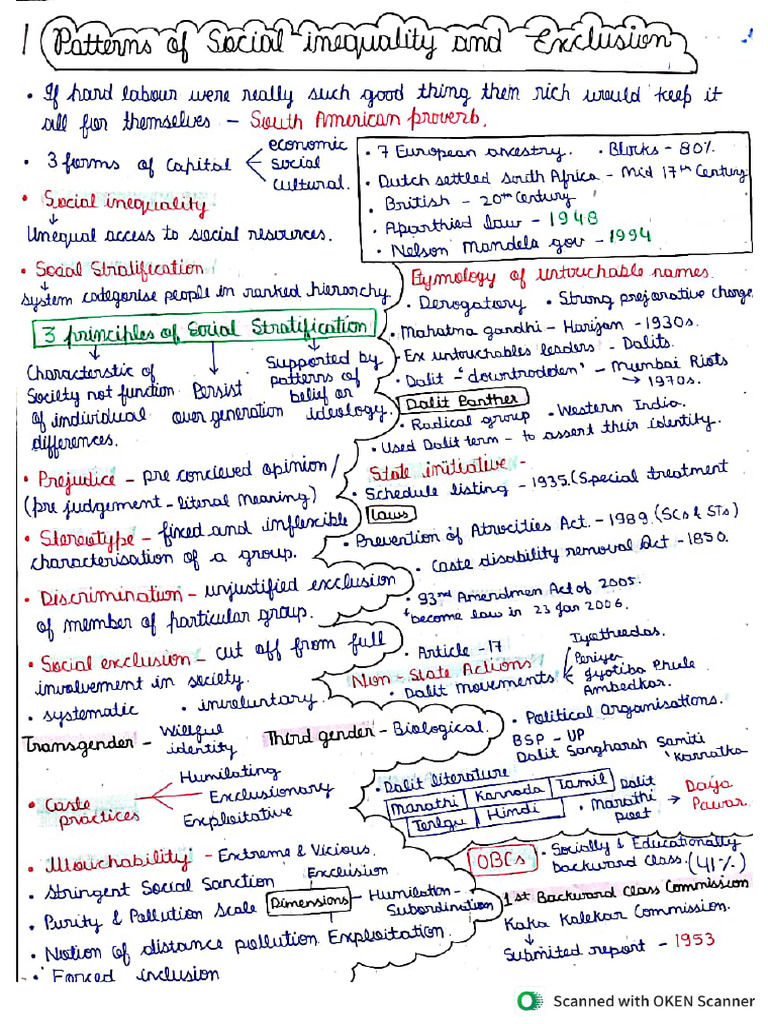 1 Patterns of Social inequality and Exclusion
• If hard labour were really such good thing them rich would keep it
all for themselves – South American proverb.
• 3 forms of Capital
economic
social
cultural.
• 7 European ancestry. • Blocks – 80%
• Dutch settled South Africa – Mid 17th Century
• British – 20th Century
• Aparthied law – 1948
• Nelson Mandela gov – 1994
• Social inequality
↓
Unequal access to social resources.
• Social Stratification
↓
system categorise people in ranked hierarchy
3 principles of Social Stratification
Characterstic of
Society not function
of individual
differences.
Persist
over generation
Supported by
patterns of
belief or
ideology.
• Prejudice – pre concieved opinion/
(pre judgement – literal meaning)
• Stereotype – fixed and inflexible
characterisation of a group.
• Discrimination – unjustified exclusion
of member of particular group.
• Social exclusion – cut off from full
involvement in society.
• systematic • involuntary.
Transgender – Willful
identity
Third gender – Biological.
• Caste
practices
Humilating
Exclusionary
Exploitative
• Untouchability – Extreme & Vicious.
• Stringent Social Sanction
• Purity & Pollution Scale
• Notion of distance pollution
• Forced inclusion
Dimensions
Exclusion
Humilation –
Subordination
Exploitation.
Etymology of untouchable names.
• Derogatory • Strong prejorative charge
• Mahatma gandhi – Harijan – 1930s.
• Ex untouchables leaders – Dalits.
• Dalit – "downtrodden" – Mumbai Riots
→ 1970s.
Dalit Panther
• Radical group • Western India.
• Used Dalit term – to assert their identity.
State initiative –
• Schedule listing – 1935. (Special treatment
Laws
• Prevention of Atrocities Act. – 1989. (SCs & STs)
• Caste disability removal Act – 1850.
• 93rd Amendmen Act of 2005.
become law in 23 Jan 2006.
• Article – 17
Non – State Actions
• Dalit movements
Iyatheedas.
Periyer
Jyotiba Phule
Ambedkar.
• Political Organisations.
BSP – UP
Dalit Sangharsh Samiti
Karnatka
• Dalit literature
Marathi Kannada Tamil
Terlgu Hindi
• Dalit
Marathi
poet
→ Daya
Pawar.
OBCs
• Socially & Educationally
backward class. (41%)
1st Backward Class Commission
Kaka Kalekar Commission.
↓
Submited report – 1953
Scanned with OKEN Scanner